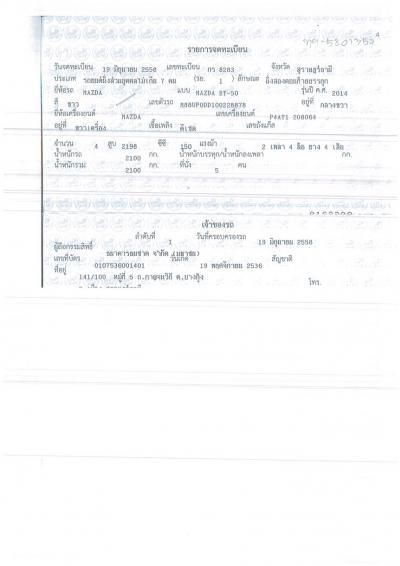 รายการจดทะเบียน
วันจดทะเบียน 19 มิถุนายน 2558 เลขทะเบียน กร 8283 จังหวัด สุราษฎร์ธานี
ประเภท รถยนต์นั่งส่วนบุคคลไม่เกิน 7 คน (รย. 1 ) ลักษณะ
ยี่ห้อรถ MAZDA แบบ MAZDA BT-50 รุ่นปี ค.ศ. 2014
สี ขาว เลขตัวรถ อยู่ที่
ยี่ห้อเครื่องยนต์ MAZDA เลขเครื่องยนต์ P4AT1 208064
อยู่ที่ ขวาเครื่อง เชื้อเพลิง ดีเซล เลขถังแก๊ส
จำนวน 4 สูบ 2198 ซีซี 150 แรงม้า 2 เพลา 4 ล้อ ยาง 4 เส้น
น้ำหนักรถ 2100 กก. น้ำหนักบรรทุก/น้ำหนักลงเพลา กก.
น้ำหนักรวม 2100 กก. ที่นั่ง 5 คน
เจ้าของรถ
ลำดับที่ 1 วันที่ครอบครองรถ 19 มิถุนายน 2558
ผู้ถือกรรมสิทธิ์ ธนาคารธนชาต จำกัด (มหาชน)
เลขที่บัตร 0107536001401 วันเกิด 19 พฤศจิกายน 2536 สัญชาติ
ที่อยู่ 141/100 หมู่ที่ 5 ถ.กาญจนวิถี ต.บางกุ้ง โทร.